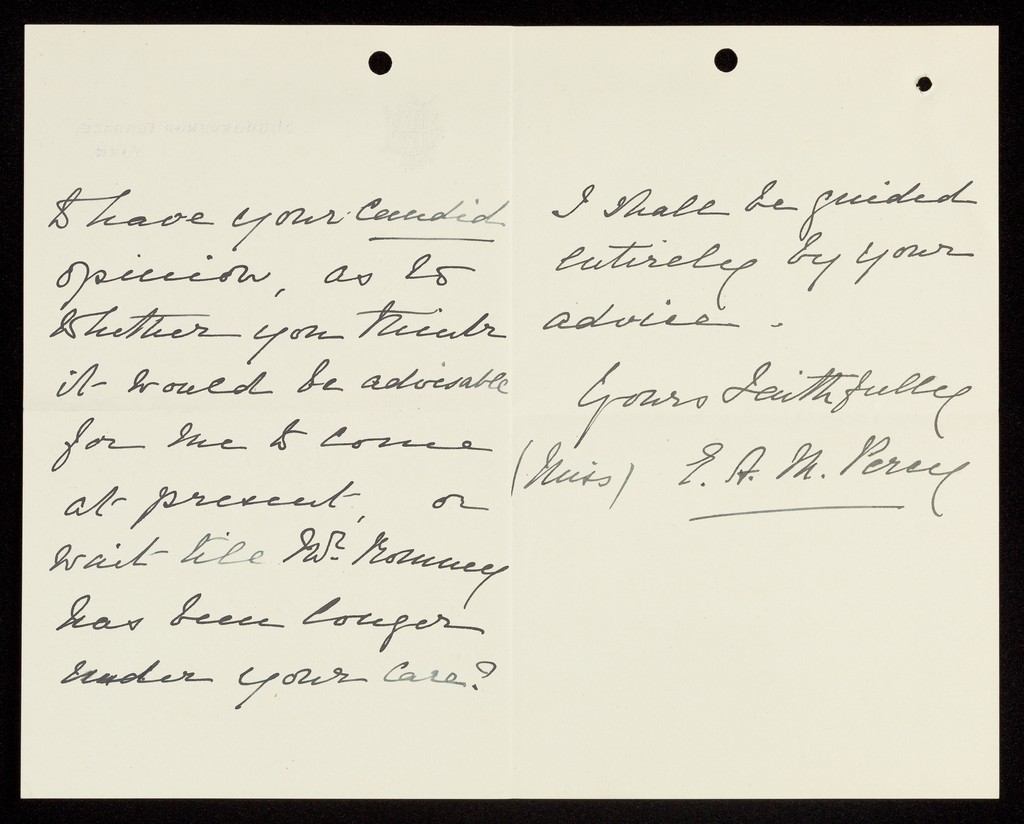 to have your candid
opinion, as to
whether you think
it would be advisable
for me to come
at present, or
wait till Mr. Romney
has been longer
under your care?
I shall be guided
entirely by your
advice.
Yours Faithfully
(Miss) E. A. M. Percy